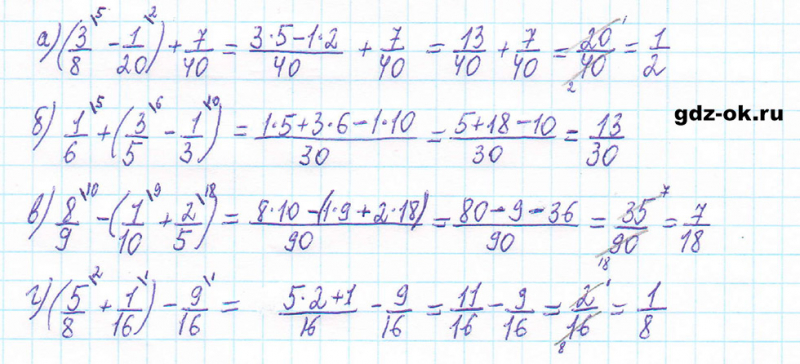 а) (3/8\5 − 1/20\2) + 7/40 = (3·5−1·2)/40 + 7/40 = 13/40 + 7/40 = 20 1/40 2 = 1/2
gdz-ok.ru
б) 1/6\5 + (3/5\6 − 1/3\10) = (1·5+3·6−1·10)/30 = (5+18−10)/30 = 13/30
в) 8/9\10 − (1/10\9 + 2/5\18) = (8·10−(1·9+2·18))/90 = (80−9−36)/90 = 35 7/90 18 = 7/18
г) (5/8\2 + 1/16\1) − 9/16\1 = (5·2+1)/16 − 9/16 = 11/16 − 9/16 = 2 1/16 8 = 1/8